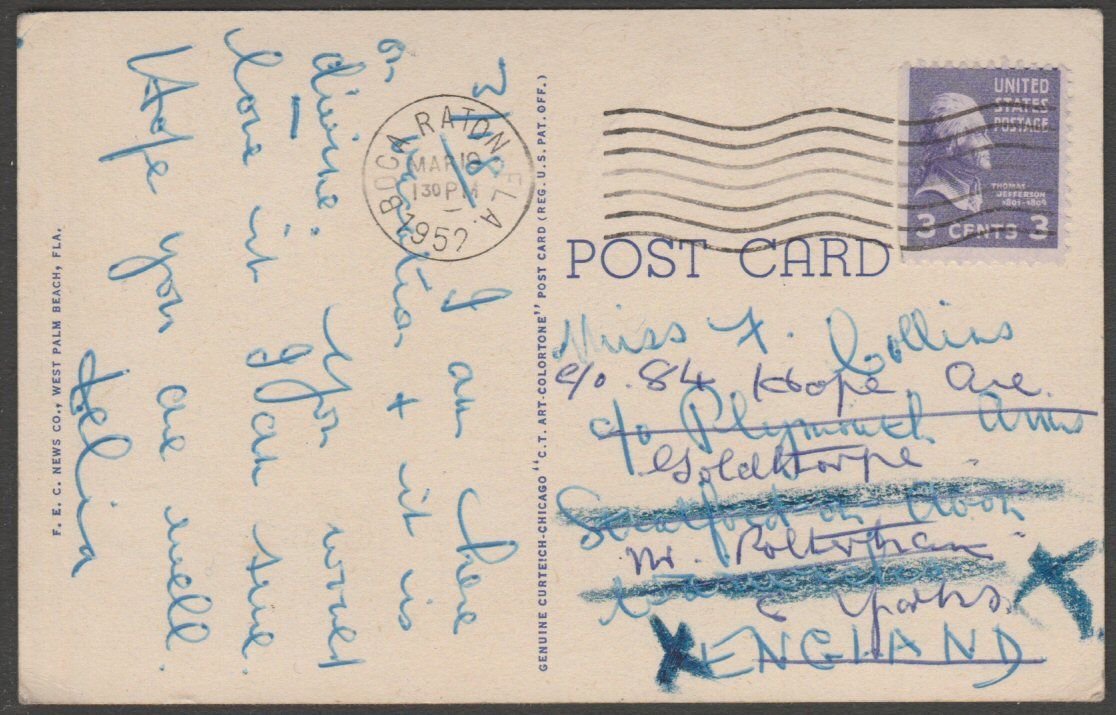 3/18
I am here
on vacation + it is
divine. You would
love it I am sure.
Hope you are well.
Delia
F. E. C. NEWS CO., WEST PALM BEACH, FLA.
GENUINE CURTEICH-CHICAGO "C.T. ART-COLORTONE" POST CARD (REG. U.S. PAT. OFF.)
BOCA RATON FLA.
MAR 18
1 30 PM
1952
UNITED
STATES
POSTAGE
THOMAS
JEFFERSON
1801-1809
3 CENTS 3
POST CARD
Miss F. Collins
c/o. 84 Hope Ave.
c/o Plymouth Arms
Goldthorpe
Stratford on Avon
Nr. Rotherham
Yorks.
ENGLAND